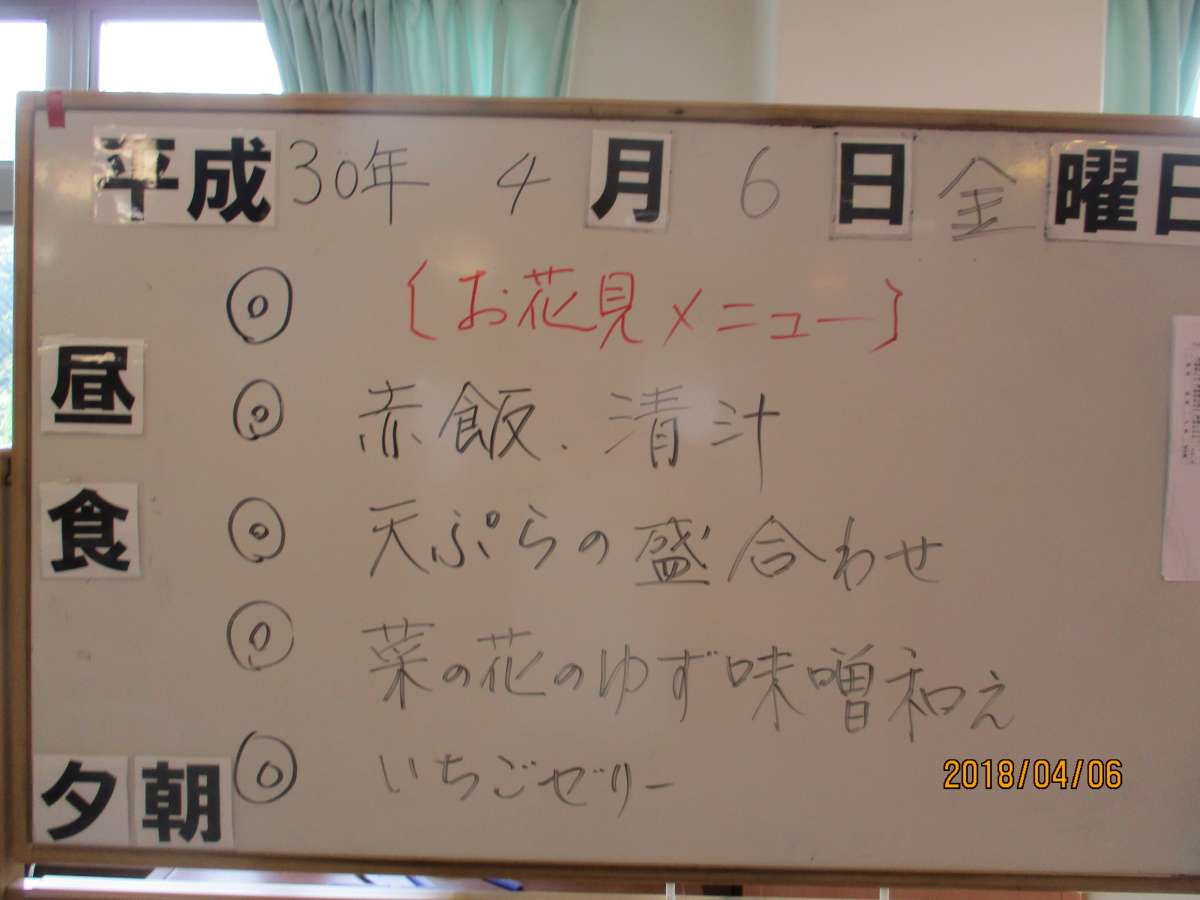 平成30年 4月 6日 金曜日
◎ 〔お花見メニュー〕
昼食
◎ 赤飯．清汁
◎ 天ぷらの盛合わせ
◎ 菜の花のゆず味噌和え
◎ いちごゼリー
夕 朝
2018/04/06